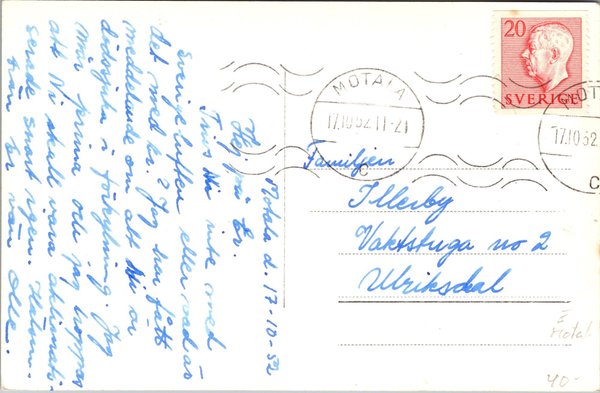 Motala d. 17-10-52
Hej på Er.
Trivs Ni inte med
Sverigeluften eller vad är
det med er? Jag har fått
meddelande om att Ni är
dödssjuka i förkylning. Jag
mår prima och jag hoppas
att Ni skall vara aklimati-
serade snart igen. Hälsn.
från Er vän Olle.
20
SVERIGE
MOTALA
17.10.52.11-21
C
MOT
17.10.52
C
Familjen
Illerby
Vaktstuga no 2
Ulriksdal
Motala
40-